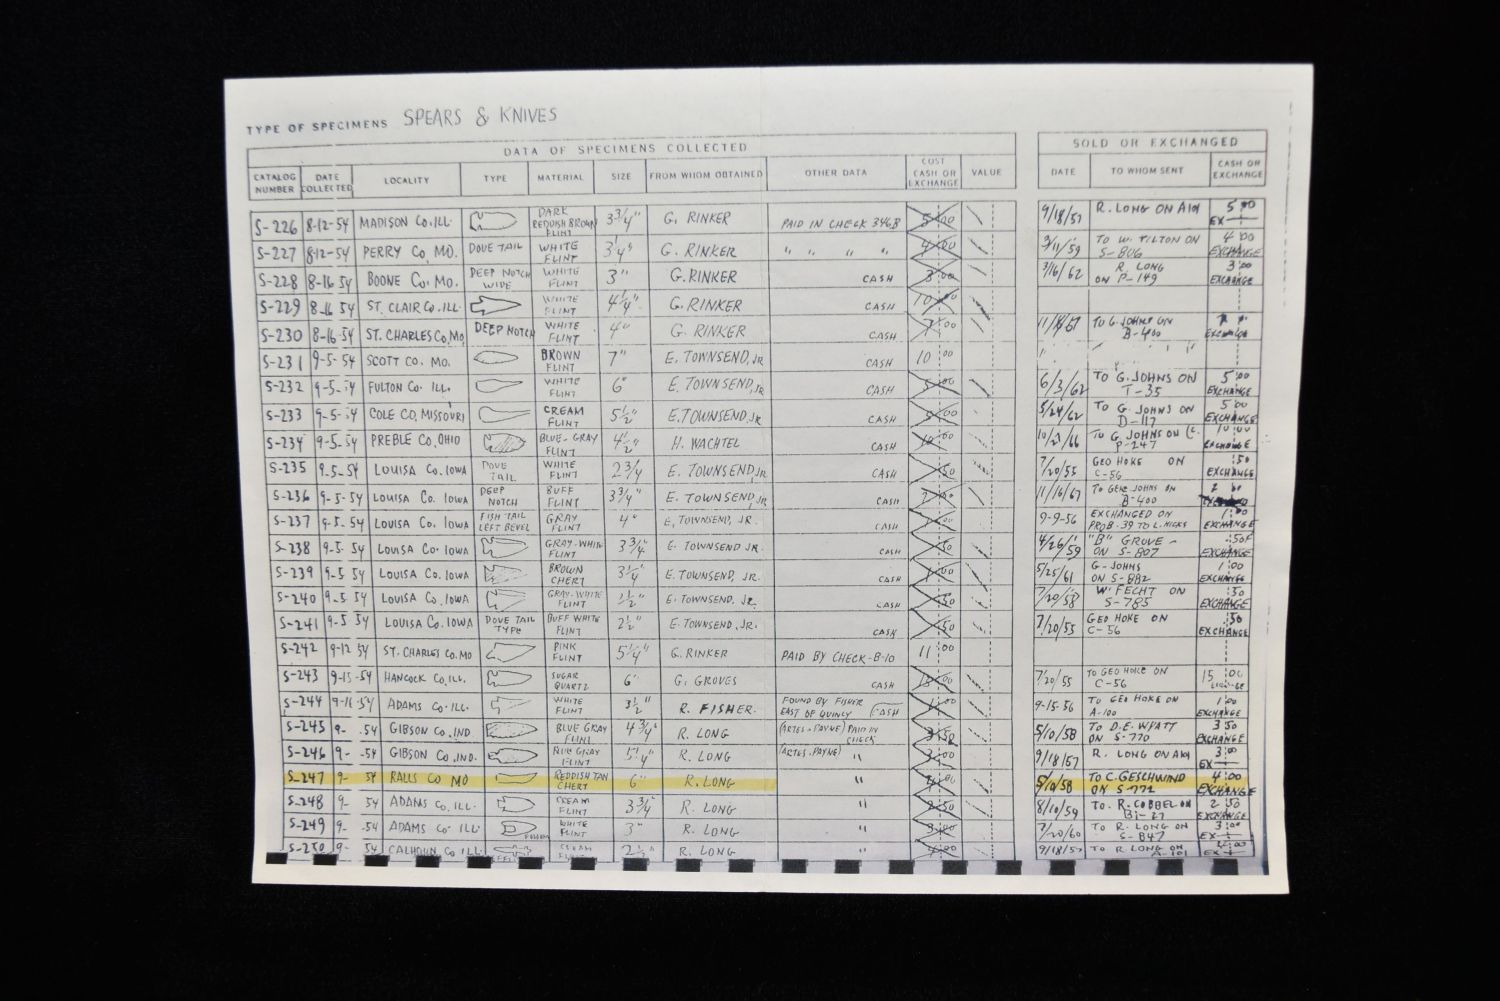 TYPE OF SPECIMENS SPEARS & KNIVES
DATA OF SPECIMENS COLLECTED SOLD OR EXCHANGED
CATALOG NUMBER DATE COLLECTED LOCALITY TYPE MATERIAL SIZE FROM WHOM OBTAINED OTHER DATA COST CASH OR EXCHANGE VALUE DATE TO WHOM SENT CASH OR EXCHANGE
S-226 8-12-54 MADISON CO. ILL. DARK REDUISH BROWN FLINT 3 3/4" G. RINKER PAID IN CHECK 346B 5 00 9/18/57 R. LONG ON A101 5 00 EX
S-227 8-12-54 PERRY CO. MO. DOVE TAIL WHITE FLINT 3 1/4" G. RINKER " " " " 4 00 TO W. TILTON ON S-806 4 00 EXCHANGE
S-228 8-16 54 BOONE CO. MO. DEEP NOTCH WIDE WHITE FLINT 3" G. RINKER CASH 3 00 3/16/62 R. LONG ON P-149 3 00 EXCHANGE
S-229 8-16 54 ST. CLAIR CO. ILL. WHITE FLINT 4 1/4" G. RINKER CASH 10 00
S-230 8-16-54 ST. CHARLES CO, MO DEEP NOTCH WHITE FLINT 4" G. RINKER CASH 7 00 TO G. JOHNS ON B-400
S-231 9-5-54 SCOTT CO. MO. BROWN FLINT 7" E. TOWNSEND, JR CASH 10 00
S-232 9-5-54 FULTON CO. ILL. WHITE FLINT 6" E. TOWNSEND, JR CASH 5 00 6/3/62 TO G. JOHNS ON T-35 5 00 EXCHANGE
S-233 9-5-54 COLE CO, MISSOURI CREAM FLINT 5 1/2" E. TOWNSEND, JR CASH 5 00 5/24/62 TO G. JOHNS ON D-117 5 00 EXCHANGE
S-234 9-5-54 PREBLE CO, OHIO BLUE-GRAY FLINT 4 1/2" H. WACHTEL CASH 10 00 10/23/66 TO G. JOHNS ON P-247 10 00 EXCHANGE
S-235 9-5-54 LOUISA CO. IOWA DOVE TAIL WHITE FLINT 2 3/4 E. TOWNSEND, JR CASH 50 7/20/55 GEO HOKE ON C-56 50 EXCHANGE
S-236 9-5-54 LOUISA CO. IOWA DEEP NOTCH BUFF FLINT 3 3/4" E. TOWNSEND, JR CASH 11/16/67 TO GEO JOHNS ON B-400
S-237 9-5-54 LOUISA CO. IOWA FISH TAIL LEFT BEVEL GRAY FLINT 4" E, TOWNSEND, JR. CASH 9-9-56 EXCHANGED ON PROB-39 TO L. HICKS 1 00 EXCHANGE
S-238 9-5-54 LOUISA CO. IOWA GRAY-WHITE FLINT 3 3/4" E. TOWNSEND JR. CASH 50 4/26/59 "B" GROVE - ON S-807 50 EXCHANGE
S-239 9-5 54 LOUISA CO. IOWA BROWN CHERT 3 1/4" E. TOWNSEND, JR. CASH 1 00 5/25/61 G-JOHNS ON S-882 1 00 EXCHANGE
S-240 9-5 54 LOUISA CO, IOWA GRAY-WHITE FLINT E. TOWNSEND, JR. CASH 50 7/20/58 W. FECHT ON S-785 50 EXCHANGE
S-241 9-5 54 LOUISA CO. IOWA DOVE TAIL TYPE BUFF WHITE FLINT 2 1/2" E. TOWNSEND, JR. CASH 50 7/20/55 GEO HOKE ON C-56 50 EXCHANGE
S-242 9-12 54 ST. CHARLES CO. MO PINK FLINT 5 1/4" G. RINKER PAID BY CHECK-B-10 11 00
S-243 9-15-54 HANCOCK CO, ILL. SUGAR QUARTZ 6" G. GROVES CASH 7/20/55 TO GEO HOKE ON C-56 15 00
S-244 9-16-54 ADAMS CO. ILL. WHITE FLINT 3 1/2" R. FISHER. FOUND BY FISHER EAST OF QUINCY CASH 1 00 9-15-56 TO GEO HOKE ON A-100 1 00 EXCHANGE
S-245 9- .54 GIBSON CO, IND BLUE GRAY FLINT 4 3/4" R. LONG (ARTES-PAYNE) PAID IN CHECK 3 50 5/10/58 TO D.E. WYATT ON S-770 3 50 EXCHANGE
S-246 9- -54 GIBSON CO, IND. BLUE GRAY FLINT R. LONG (ARTES-PAYNE) " 3 00 9/18/57 R. LONG ON A101 3 00 EX
S-247 9- 54 RALLS CO MO REDDISH TAN CHERT 6" R. LONG " 4 00 5/10/58 TO C. GESCHWIND ON S-772 4 00 EXCHANGE
S-248 9- 54 ADAMS CO, ILL. CREAM FLINT 3 3/4" R. LONG " 2 50 8/10/59 TO. R. COBBEL ON Bi-27 2 50 EXCHANGE
S-249 9- .54 ADAMS CO ILL. WHITE FLINT 3" R. LONG " 3 00 7/20/60 TO R. LONG ON S-847 3 00 EX
S-250 9- 54 CALHOUN CO ILL. CREAM FLINT 2 1/2" R. LONG " 4 00 9/18/57 TO R LONG ON A-101 4 00 EX